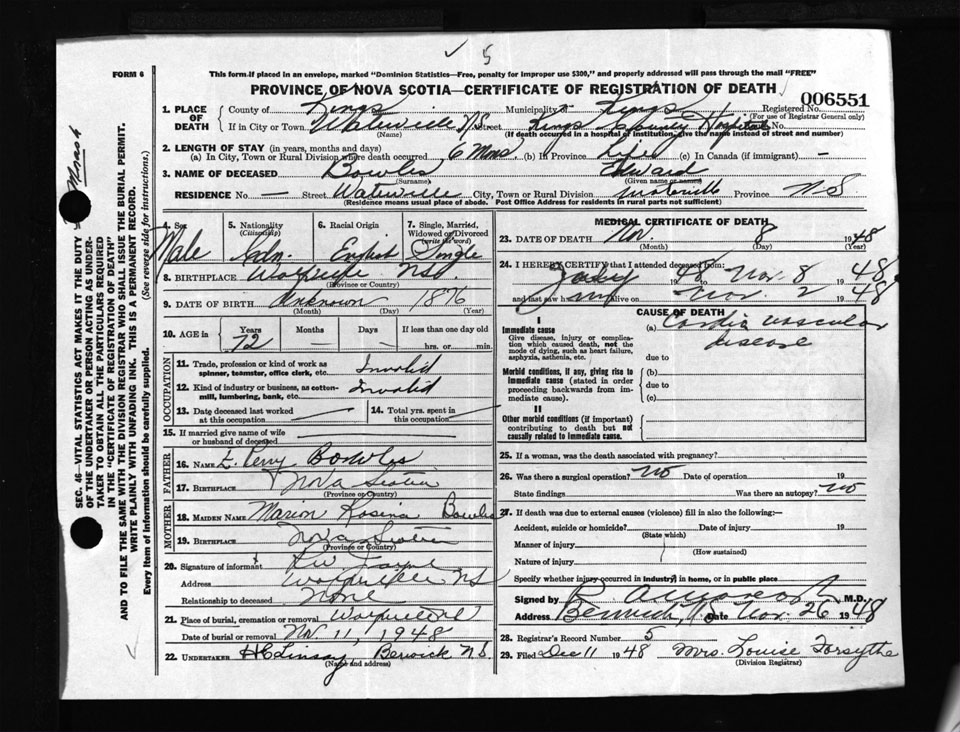 5
FORM 6
This form if placed in an envelope, marked "Dominion Statistics—Free, penalty for improper use $300," and properly addressed will pass through the mail "FREE"
PROVINCE OF NOVA SCOTIA—CERTIFICATE OF REGISTRATION OF DEATH
006551
1. PLACE OF DEATH
County of Kings Municipality of Kings Registered No.
(For use of Registrar General only)
If in City or Town Waterville N.S. Street Kings County Hospital No.
(If death occurred in a hospital or institution, give the name instead of street and number)
2. LENGTH OF STAY (in years, months and days)
(a) In City, Town or Rural Division where death occurred, 6 Mns. (b) In Province Life (c) In Canada (if immigrant) —
3. NAME OF DECEASED Bowles Edward
(Surname) (Given name or names)
RESIDENCE No. — Street Waterville City, Town or Rural Division Waterville Province N.S.
(Residence means usual place of abode. Post Office Address for residents in rural parts not sufficient)
4. Sex Male
5. Nationality (Citizenship) Cdn.
6. Racial Origin English
7. Single, Married, Widowed or Divorced (write the word) Single
8. BIRTHPLACE Wolfville N.S.
(Province or Country)
9. DATE OF BIRTH Unknown 1876
(Month) (Day) (Year)
10. AGE in Years 72 Months — Days — If less than one day old hrs. or min.
OCCUPATION
11. Trade, profession or kind of work as spinner, teamster, office clerk, etc. Invalid
12. Kind of industry or business, as cotton-mill, lumbering, bank, etc. Invalid
13. Date deceased last worked at this occupation
14. Total yrs. spent in this occupation
15. If married give name of wife or husband of deceased
FATHER
16. NAME E. Perry Bowles
17. BIRTHPLACE Nova Scotia
(Province or Country)
MOTHER
18. MAIDEN NAME Marion Bowles
19. BIRTHPLACE Nova Scotia
(Province or Country)
20. Signature of informant
Address Wolfville N.S.
Relationship to deceased None
21. Place of burial, cremation or removal Wolfville
Date of burial or removal Nov 11, 1948
22. UNDERTAKER H C Linsay Berwick N.S.
(Name and address)
MEDICAL CERTIFICATE OF DEATH
23. DATE OF DEATH Nov. 8 1948
(Month) (Day) (Year)
24. I HEREBY CERTIFY that I attended deceased from:
48 to Nov. 8 1948
and last saw alive on Nov. 2 1948
CAUSE OF DEATH
I
Immediate cause
Give disease, injury or complication which caused death, not the mode of dying, such as heart failure, asphyxia, asthenia, etc.
(a) Cardio vascular disease
due to
Morbid conditions, if any, giving rise to immediate cause (stated in order proceeding backwards from immediate cause).
(b)
due to
(c)
II
Other morbid conditions (if important) contributing to death but not causally related to immediate cause.
25. If a woman, was the death associated with pregnancy?
26. Was there a surgical operation? No Date of operation 19
State findings Was there an autopsy? No
27. If death was due to external causes (violence) fill in also the following:—
Accident, suicide or homicide? Date of injury 19
(State which)
Manner of injury
(How sustained)
Nature of injury
Specify whether injury occurred in industry, in home, or in public place
Signed by M.D.
Address Berwick, N.S. Date Nov. 26 1948
28. Registrar's Record Number 5
29. Filed Dec 11 1948 Mrs. Louise Forsythe
(Division Registrar)
SEC. 46—VITAL STATISTICS ACT MAKES IT THE DUTY
OF THE UNDERTAKER OR PERSON ACTING AS UNDER-
TAKER TO OBTAIN ALL THE PARTICULARS REQUIRED
IN THE "CERTIFICATE OF REGISTRATION OF DEATH"
AND TO FILE THE SAME WITH THE DIVISION REGISTRAR WHO SHALL ISSUE THE BURIAL PERMIT.
WRITE PLAINLY WITH UNFADING INK. THIS IS A PERMANENT RECORD.
Every item of information should be carefully supplied. (See reverse side for instructions.)